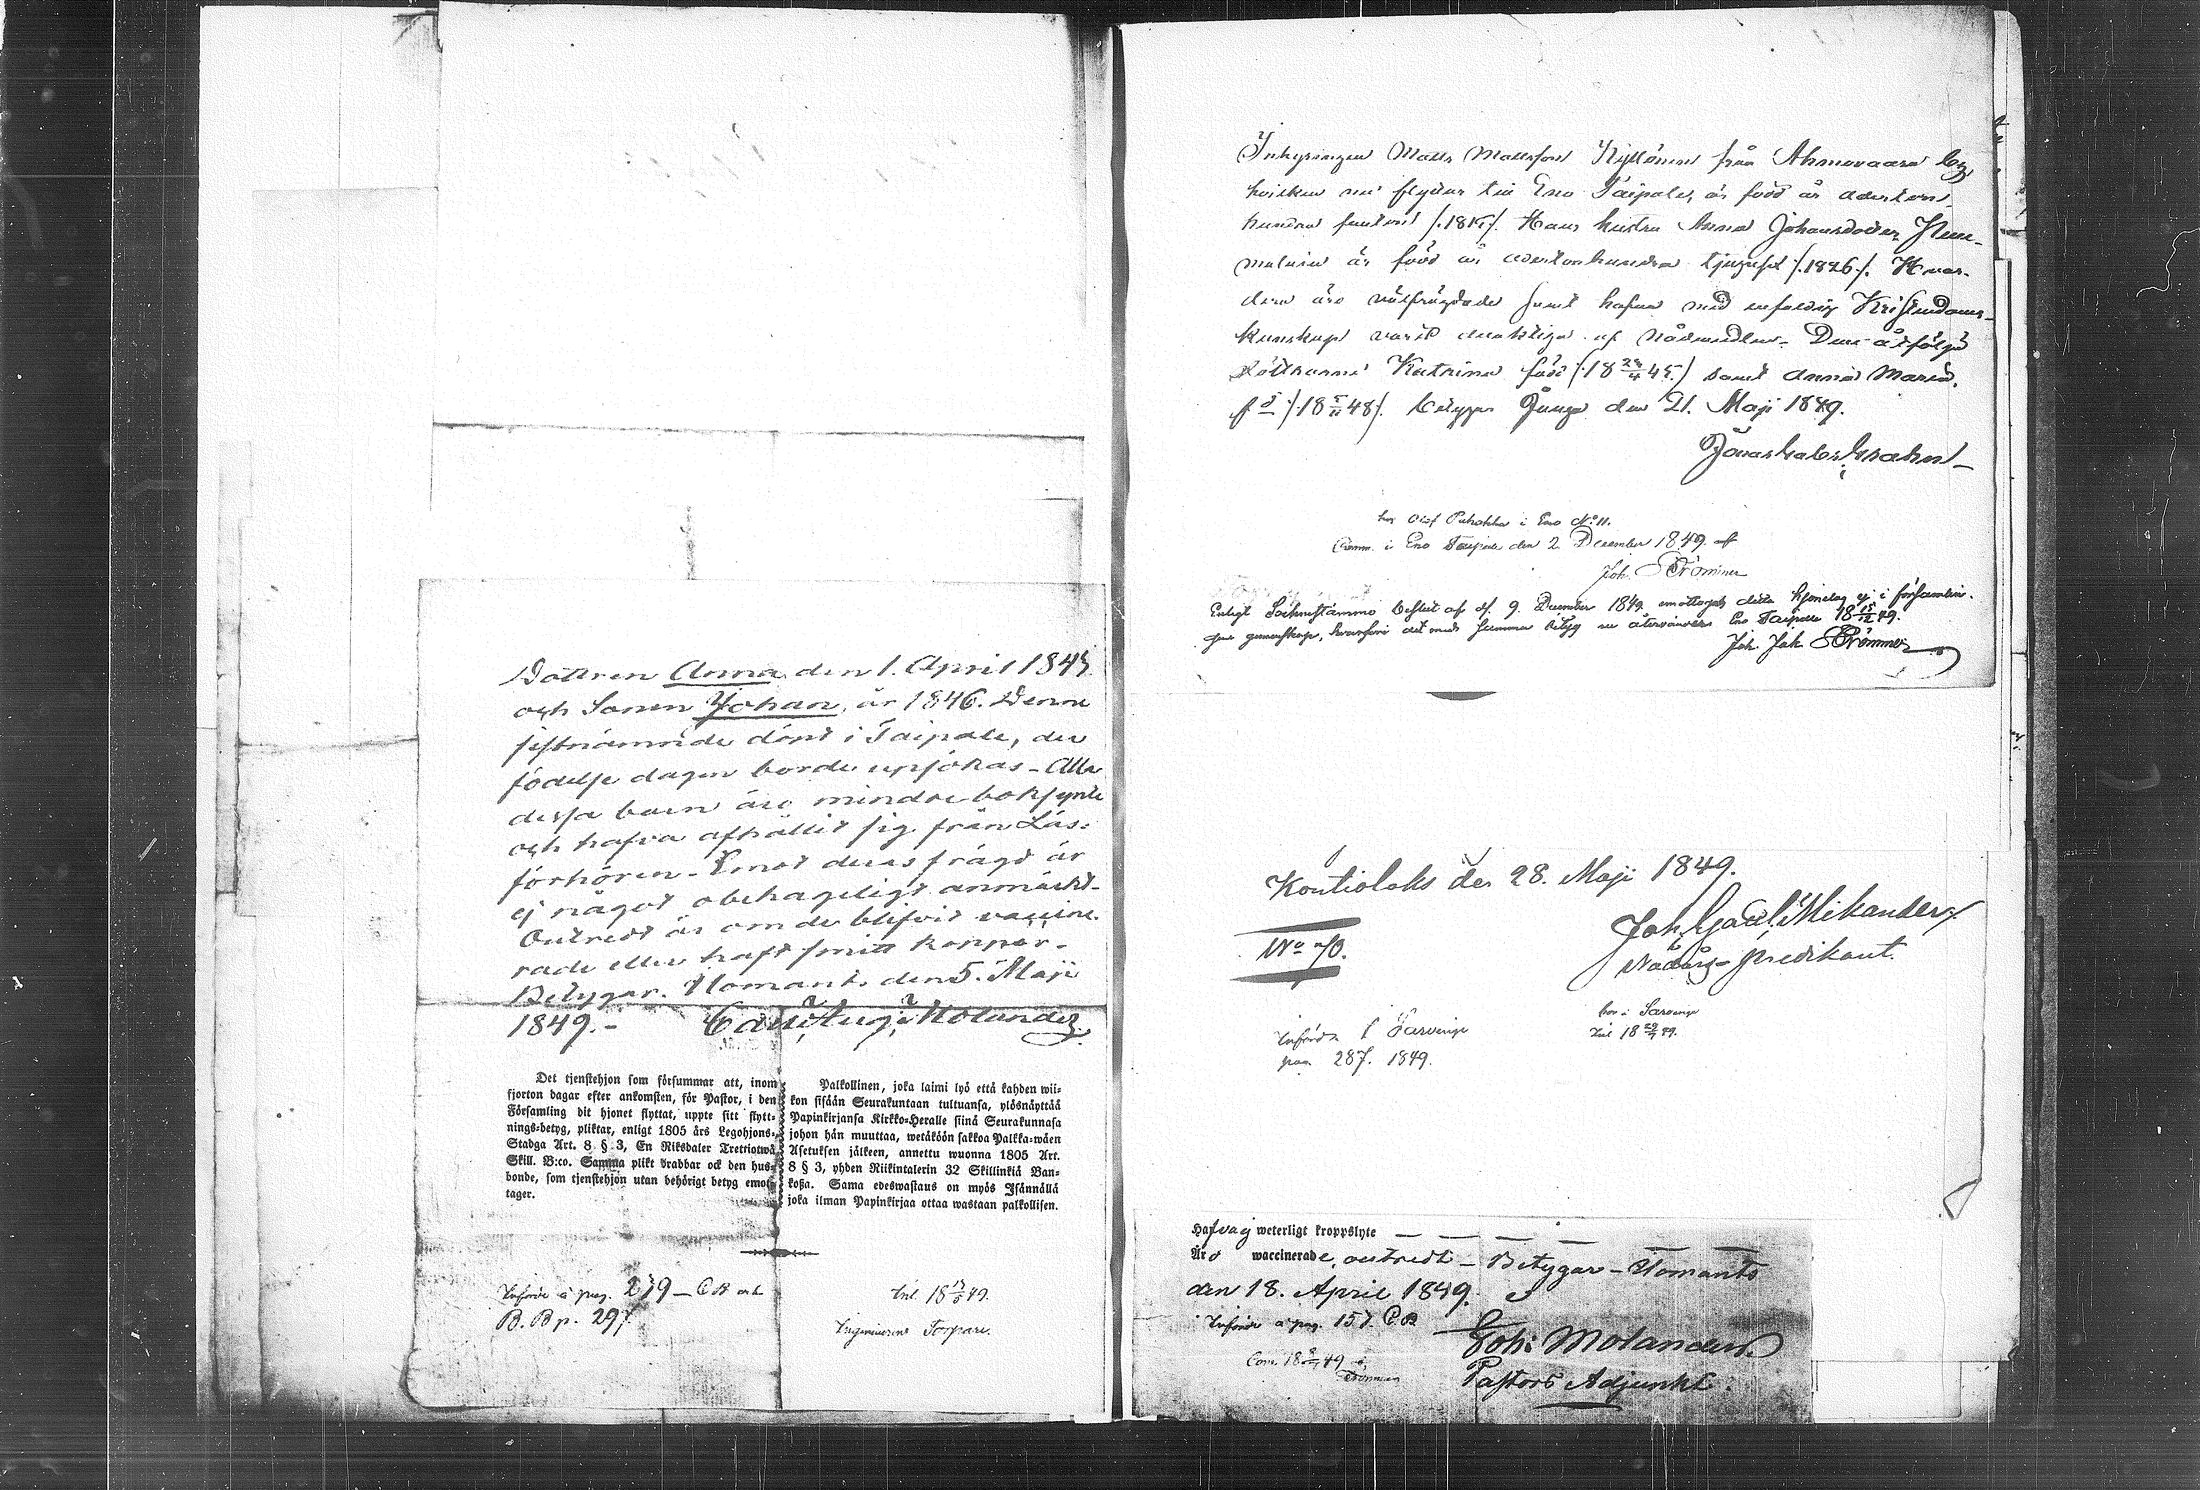 Dottren Anna, den 1. April 1843.
och Sonen Johan, år 1846. Denne
sistnämnde döpt i Taipale, der
födelse dagen borde upsökas - Alla
dessa barn äro mindre boksynte
och hafva afhållit sig från Läs-
förhören. Emot deras frägd är
ej något obehageligt anmärkt.
Outredt är om de blifvit vaccine-
rade eller haft smitt koppor.
Betygar. Ilomants den 5. Maji
1849. - Carl Aug. Molander
Det tjenstehjon som försummar att, inom
fjorton dagar efter ankomsten, för Pastor, i den
Församling dit hjonet flyttat, uppte sitt flytt-
nings-betyg, pliktar, enligt 1805 års Legohjons-
Stadga Art. 8 § 3, En Riksdaler Trettiotwå
Skill. B:co. Samma plikt drabbar ock den hus-
bonde, som tjenstehjon utan behörigt betyg emot-
tager.
Palkollinen, joka laimi lyö että kahden wii-
kon sisään Seurakuntaan tultuansa, ylösnäyttää
Papinkirjansa Kirkko-Heralle siinä Seurakunnasa
johon hän muuttaa, wetäköön sakkoa Palkka-wäen
Asetuksen jälkeen, annettu wuonna 1805 Art.
8 § 3, yhden Riikintalerin 32 Skillinkiä Ban-
koßa. Sama edeswastaus on myös Isännällä
joka ilman Papinkirjaa ottaa wastaan palkollisen.
Införde å pag. 219 - C B och
B. B p. 297
Inl. 18 13/5 49.
Inhysingen Matts Mattsson Kyllönen från Ahmovaara by,
hvilken nu flyttar till Eno Taipale, är född år aderton-
hundra femton /:1815/. Hans hustru Anna Johansdotter Ham-
malain är född år adertonhundra tjugusex /:1826:/. Hvar-
dera äro välfrägdade samt hafva med enfaldig Kristendoms-
kunskap varit delaktiga af nådemedlen. Dem åtfölja
döttrarne Katrina född /:18 24/4 45:/ samt Anna Maria,
född /:18 5/11 48/. betygar Juuga den 21. Maji 1849.
hos Olof Puhakka i Eno No 11.
Comm. i Eno Taipale den 2 December 1849 af
Joh. Strömmer
Enligt Sockenstämmo beslut af d. 9. December 1849 emottages detta hjonelag ej i församlin-
gens gemenskap, hvarföre det med samma betyg nu återvänder Eno Taipale 18 15/12 49.
Joh. Jak. Strömmer
Kontiolaks den 28. Maji 1849.
No 70.
Joh. Gabr. Mikander
Nådårs-Predikant.
hos i Sarvinge
Inl 18 29/7 49.
Införde i Sarvinge
pag 287. 1849.
Hafva ej weterligt kroppslyte
Äro waccinerade, outredt - Betygar - Ilomants
den 18. April 1849.
Införde å pag. 157. C B
Joh: Molander.
Pastors Adjunkt.